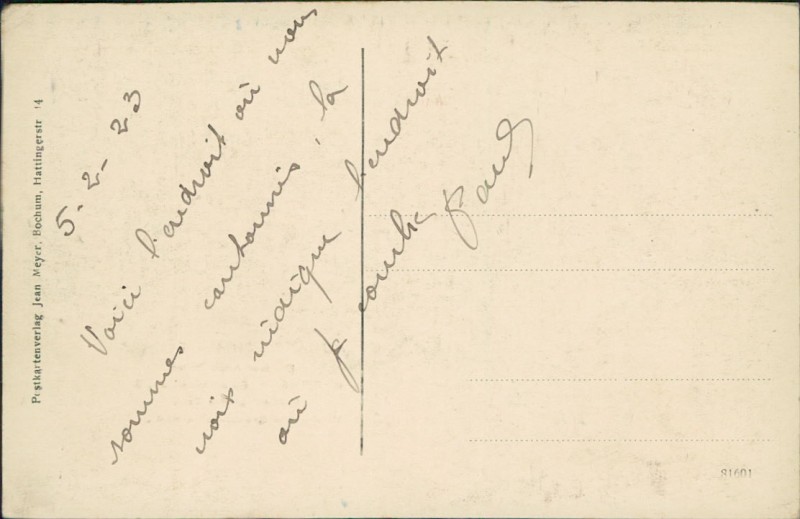 5-2-23
Voici l'endroit où nous
sommes cantonnés, la
croix indique l'endroit
où je couche
Paul
Postkartenverlag Jean Meyer, Bochum, Hattingerstr 14
81601